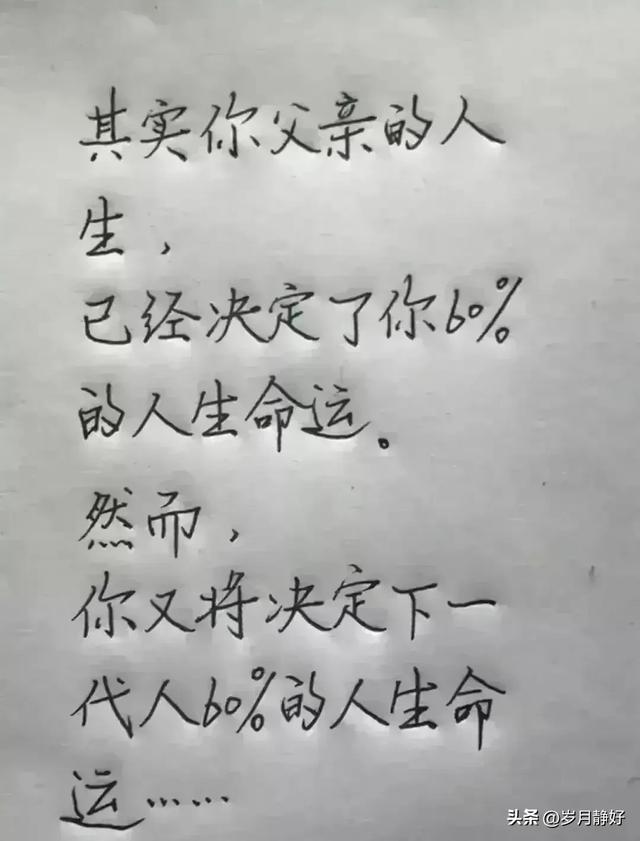 其实你父亲的人
生，
已经决定了你60%
的人生命运。
然而，
你又将决定下一
代人60%的人生命
运……
头条 @岁月静好